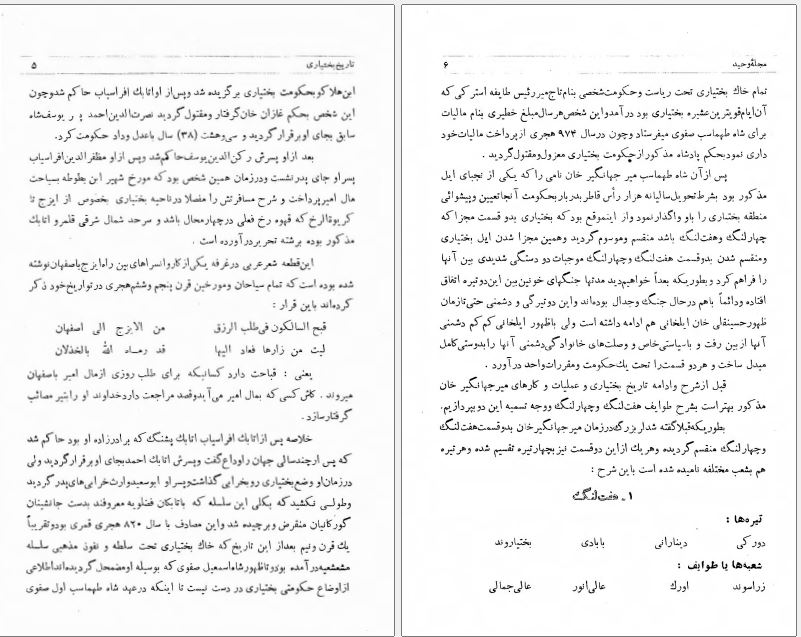 تاریخ بختیاری ۵
این هلاکو بحکومت بختیاری برگزیده شد و پس از او اتابک افراسیاب حاکم شد و چون
این شخص بحکم غازان خان گرفتار و مقتول گردید نصرت‌الدین احمد پسر یوسف شاه
سابق بجای او برقرار گردید و سی و هشت (۳۸) سال با عدل و داد حکومت کرد.
بعد از او پسرش رکن‌الدین یوسف حاکم شد و پس از او مظفرالدین افراسیاب
پسر او جای پدر نشست و در زمان همین شخص بود که مورخ شهیر ابن بطوطه بسیاحت
مال امیر پرداخت و شرح مسافرتش را مفصلا در ناحیه بختیاری بخصوص از ایزج تا
کریوة الرخ که قهوه رخ فعلی در چهارمحال باشد و سرحد شمال شرقی قلمرو اتابک
مذکور بوده برشته تحریر در آورده است .
این قطعه شعر عربی در غرفه یکی از کاروانسراهای بین راه ایزج باصفهان نوشته
شده بوده است که تمام سیاحان و مورخین قرن پنجم و ششم هجری در تواریخ خود ذکر
کرده‌اند باین قرار :
قبح السالکون فی طلب الرزق من الایزج الی اصفهان
لیت من زارها فعاد الیها قد رماه الله بالخذلان
یعنی : قباحت دارد کسانیکه برای طلب روزی از مال امیر باصفهان
میروند . کاش کسی که بمال امیر می‌آید و قصد مراجعت دارد خداوند او را بتیر مصائب
گرفتار سازد .
خلاصه پس از اتابک افراسیاب اتابک پشنگ که برادرزاده او بود حاکم شد
که پس از چند سالی جهان را وداع گفت و پسرش اتابک احمد بجای او برقرار گردید ولی
در زمان او وضع بختیاری رو بخرابی گذاشت و پسر او ابوسعید وارث خرابی‌های پدر گردید
و طولی نکشید که بکلی این سلسله که باتابکان فضلویه معروفند بدست جانشینان
گورکانیان منقرض و برچیده شد و این مصادف با سال ۸۲۰ هجری قمری بود و تقریباً
یک قرن و نیم بعد از این تاریخ که خاک بختیاری تحت سلطه و نفوذ مذهبی سلسله
مشعشعیه در آمده بود و تا ظهور شاه اسمعیل صفوی که بوسیله او مضمحل گردیده‌اند اطلاعی
از اوضاع حکومتی بختیاری در دست نیست تا اینکه در عهد شاه طهماسب اول صفوی
مجلهٔ وحید ۶
تمام خاک بختیاری تحت ریاست و حکومت شخصی بنام تاج میر رئیس طایفه استرکی که
آن ایام قویترین عشیره بختیاری بود در آمد و این شخص هر سال مبلغ خطیری بنام مالیات
برای شاه طهماسب صفوی میفرستاد و چون در سال ۹۷۴ هجری از پرداخت مالیات خود
داری نمود بحکم پادشاه مذکور از حکومت بختیاری معزول و مقتول گردید .
پس از آن شاه طهماسب میر جهانگیر خان نامی را که یکی از نجبای ایل
مذکور بود بشرط تحویل سالیانه هزار رأس قاطر بدربار بحکومت آنجا تعیین و پیشوائی
منطقه بختیاری را باو واگذار نمود و از اینموقع بود که بختیاری بدو قسمت مجزا که
چهارلنگ و هفت‌لنگ باشد منقسم و موسوم گردید و همین مجزا شدن ایل بختیاری
و منقسم شدن بدو قسمت هفت‌لنگ و چهارلنگ موجبات دو دستگی شدیدی بین آنها
را فراهم کرد و بطوریکه بعداً خواهیم دید مدتها جنگهای خونین بین این دو تیره اتفاق
افتاده و دائماً باهم در حال جنگ وجدال بوده‌اند و این دوتیرگی و دشمنی حتی تا زمان
ظهور حسینقلی خان ایلخانی هم ادامه داشته است ولی با ظهور ایلخانی کم کم دشمنی
آنها از بین رفت و با سیاستی خاص و وصلت‌های خانوادگی دشمنی آنها را بدوستی کامل
مبدل ساخت و هر دو قسمت را تحت یک حکومت و مقررات واحد در آورد .
قبل از شرح و ادامه تاریخ بختیاری و عملیات و کارهای میر جهانگیر خان
مذکور بهتر است بشرح طوایف هفت‌لنگ و چهارلنگ و وجه تسمیه این دو بپردازیم .
بطوریکه قبلا گفته شد لر بزرگ در زمان میر جهانگیرخان بدو قسمت هفت‌لنگ
و چهارلنگ منقسم گردیده و هر یک از این دو قسمت نیز بچهار تیره تقسیم شده و هر تیره
هم بشعب مختلفه نامیده شده است باین شرح :
۱ ـ هفت‌لنگ
تیره‌ها :
دورکی دینارانی بابادی بختیاروند
شعبه‌ها یا طوایف :
زراسوند اورک عالی‌انور عالی‌جمالی